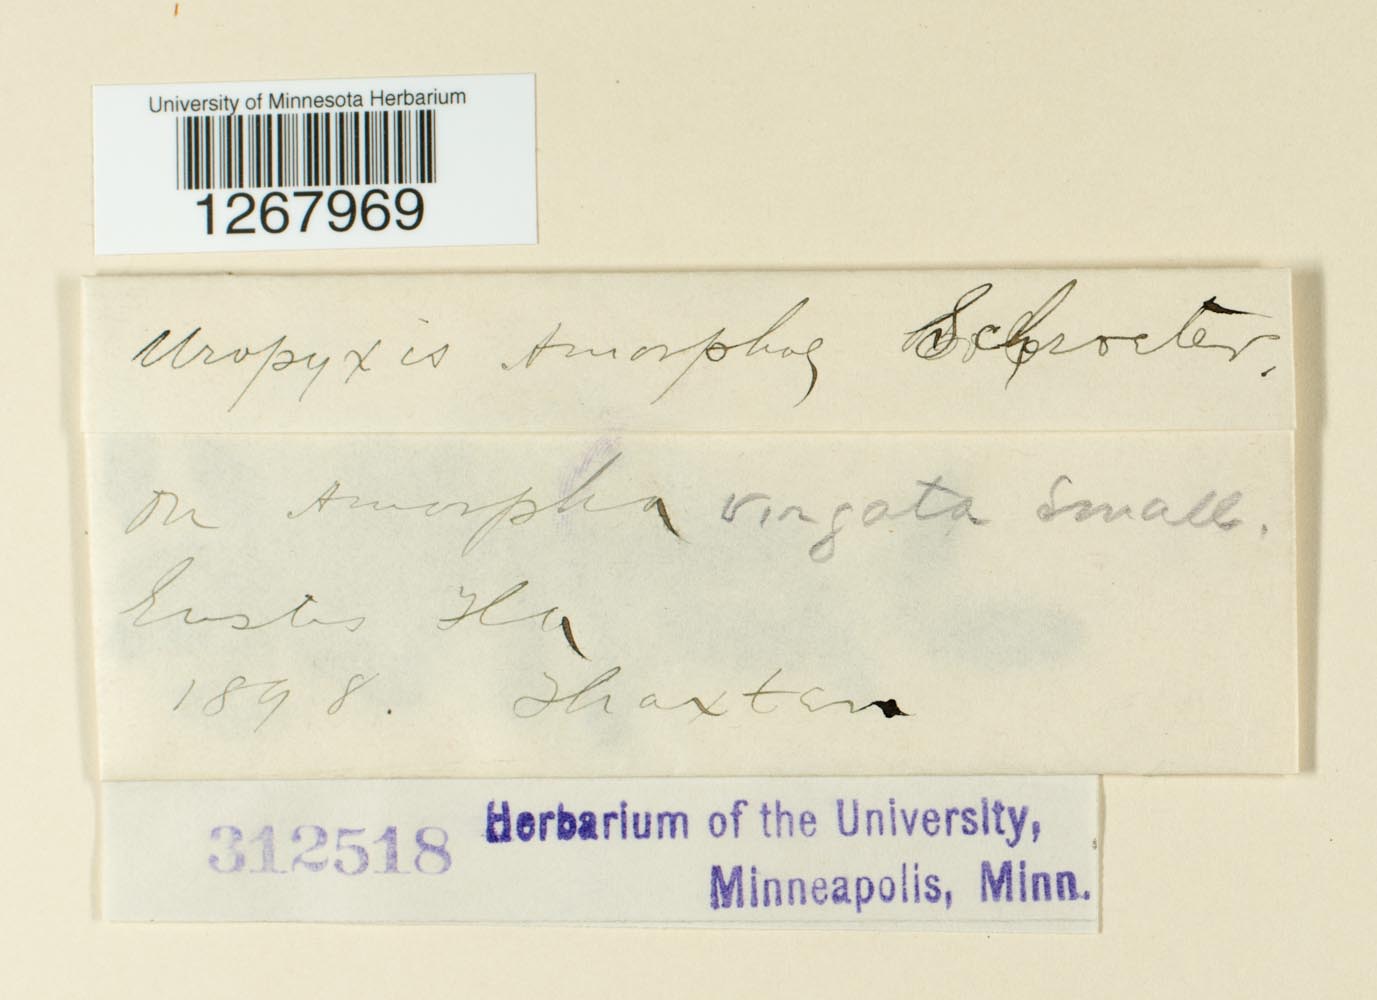 University of Minnesota Herbarium
1267969
Uropyxis Amorphae Schroeter.
On Amorpha virgata Small.
Eustis Fla
1898. Thaxter
312518
Herbarium of the University,
Minneapolis, Minn.